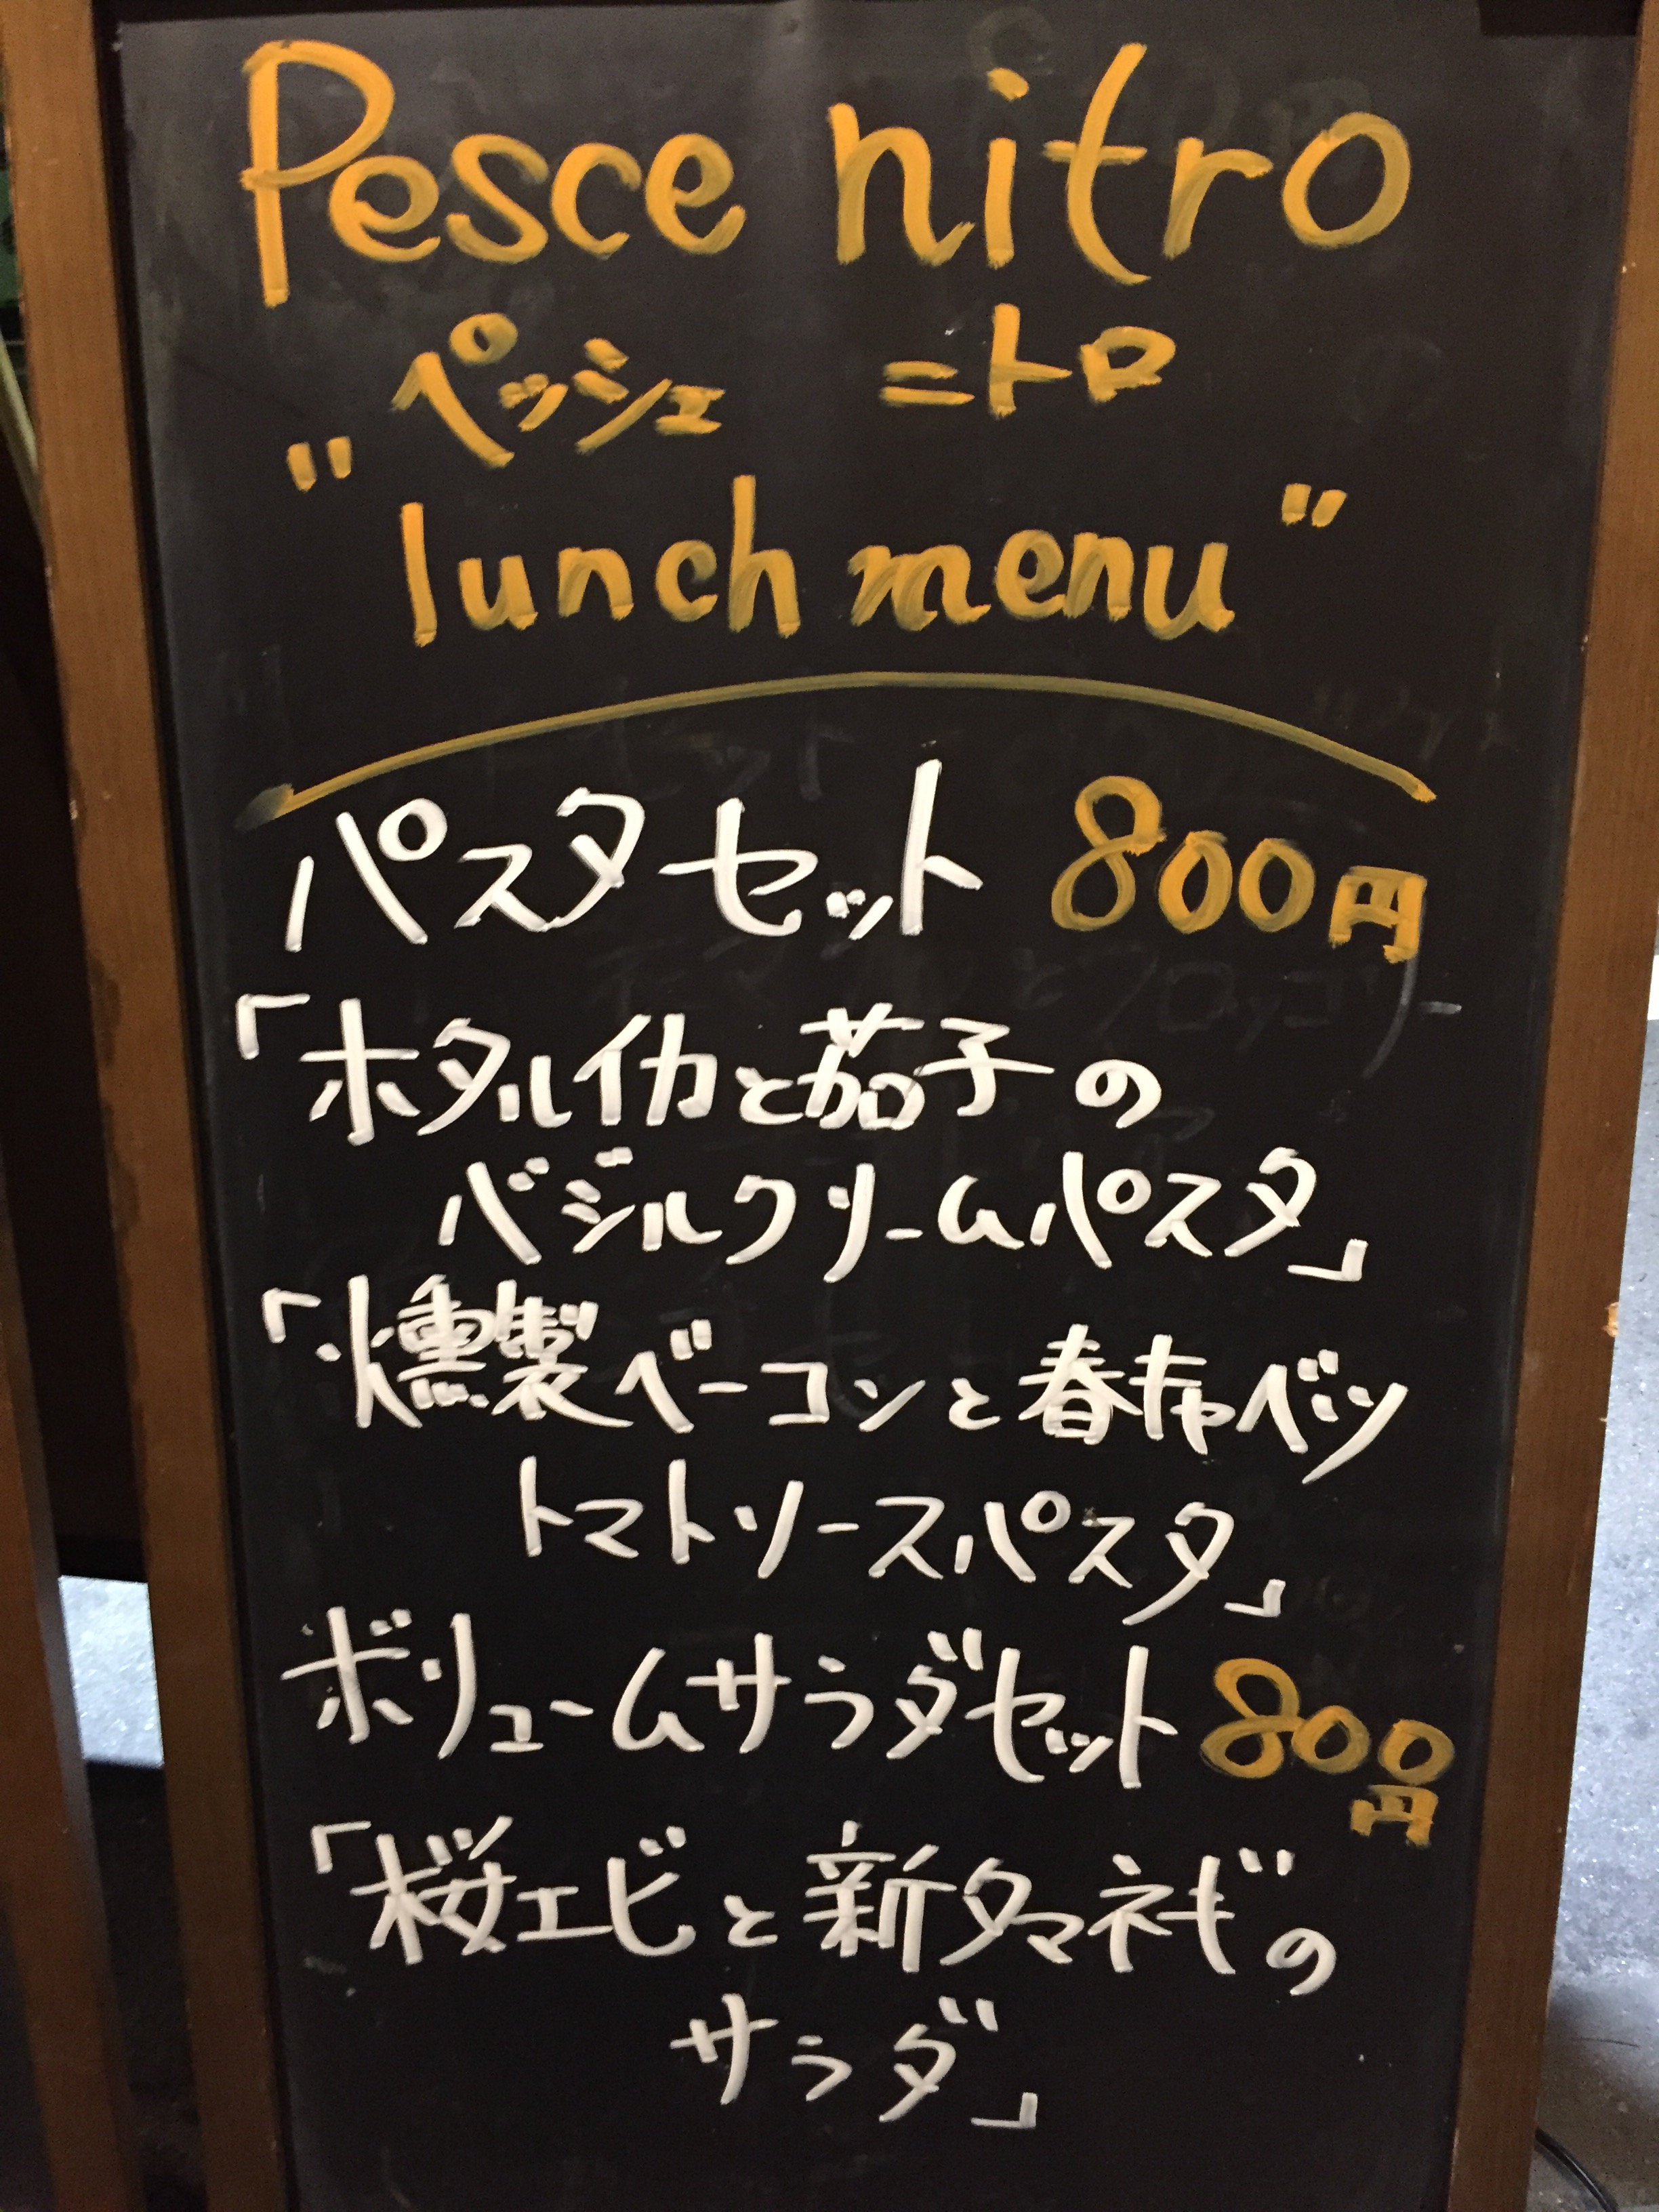 Pesce nitro
ペッシェ ニトロ
"lunch menu"
パスタセット 800円
「ホタルイカと茄子の
バジルクリームパスタ」
「燻製ベーコンと春キャベツ
トマトソースパスタ」
ボリュームサラダセット 800円
「桜エビと新タマネギの
サラダ」